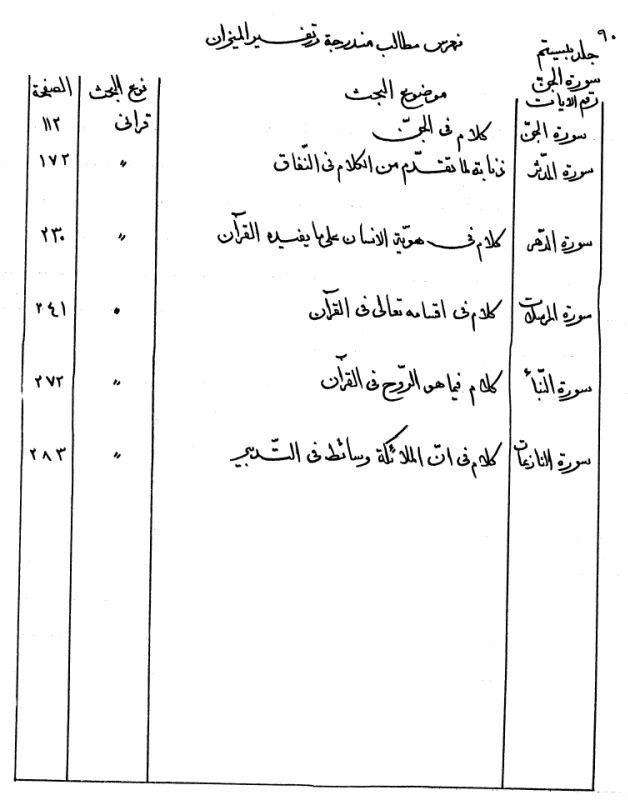 ٩٠
جلد بیستم
فهرس مطالب مندرجة در تفسیر المیزان
سورة الجن
رقم الآيات موضوع البحث نوع البحث الصفحة
سورة الجنّ كلام فى الجنّ قرانى ١١٢
سورة المدّثر ذنابة لما تقدّم من الكلام فى النّفاق 〃 ١٧٢
سورة الدّهر كلام فى هويّة الانسان على ما يفيده القرآن 〃 ٢٣٠
سورة المرسلات كلام فى اقسامه تعالى فى القرآن • ٢٤١
سورة النّبأ كلام فيما هو الرّوح فى القرآن 〃 ٢٧٢
سورة النازعات كلام فى انّ الملائكة وسائط فى التّدبير 〃 ٢٨٣